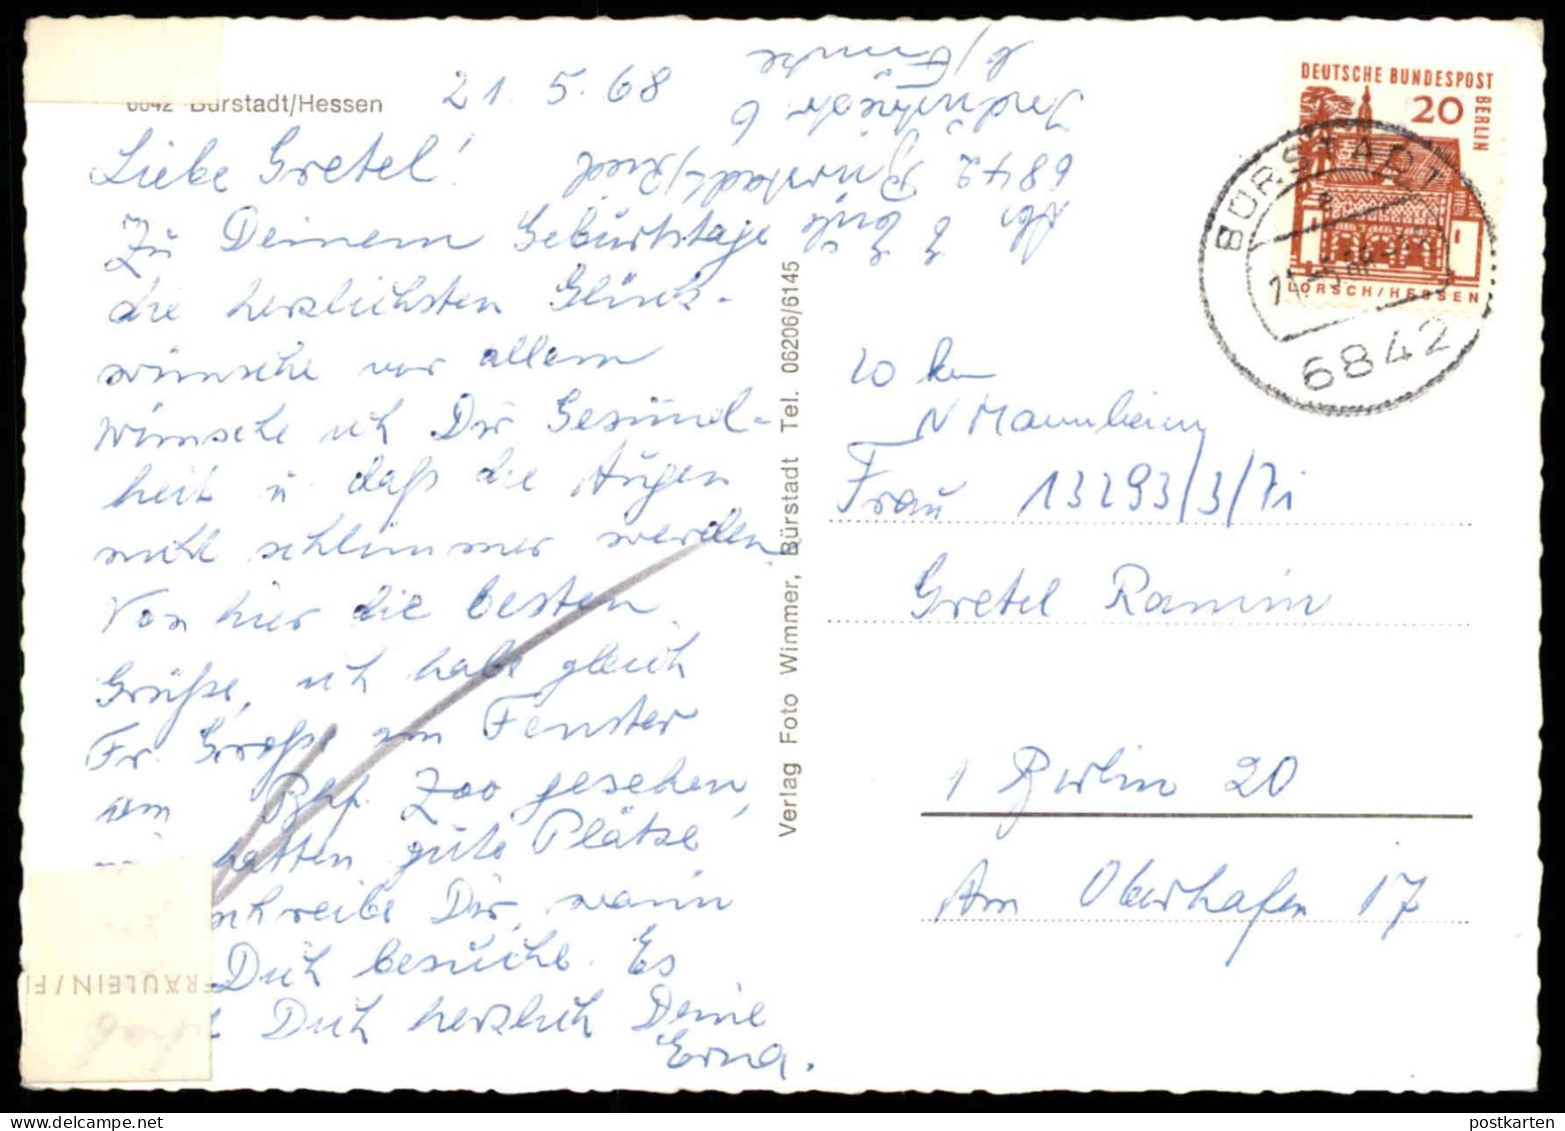 6842 Bürstadt/Hessen
21. 5. 68
Liebe Gretel!
Zu Deinem Geburtstage
die herzlichsten Glück-
wünsche vor allem
wünsche ich Dir Gesund-
heit u. daß die Augen
nicht schlimmer werden.
Von hier die besten
Grüße, ich habe gleich
Fr. Große am Fenster
am Bhf. Zoo gesehen,
hatten gute Plätze
schreibe Dir, wann
Dich besuche. Es
Dich herzlich Deine
Erna.
FRÄULEIN/F
Abs.
z. Z.
6842 Bürstadt/Ried
Industriestr 6
b/
Verlag Foto Wimmer, Bürstadt Tel. 06206/6145
DEUTSCHE BUNDESPOST
BERLIN
20
LORSCH/HESSEN
BÜRSTADT
6842
20 km
N Mannheim
Frau 13293/3/7i
Gretel Ramin
1 Berlin 20
Am Oberhafen 17
postkarten